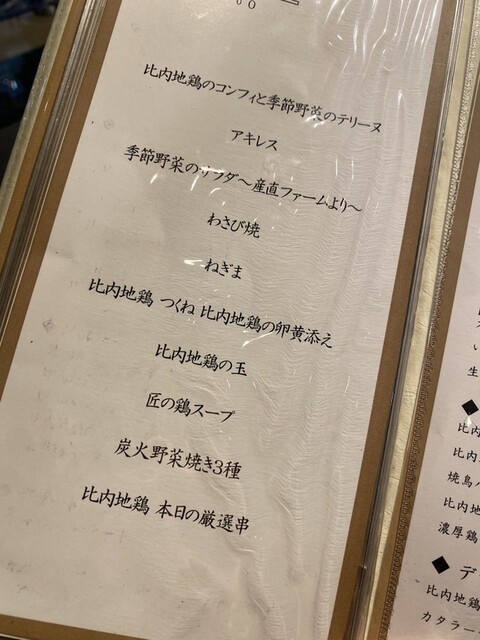 比内地鶏のコンフィと季節野菜のテリーヌ
アキレス
季節野菜のサラダ～産直ファームより～
わさび焼
ねぎま
比内地鶏 つくね 比内地鶏の卵黄添え
比内地鶏の玉
匠の鶏スープ
炭火野菜焼き3種
比内地鶏 本日の厳選串
い
生
◆
比内
比内
焼鳥
比内地
濃厚鶏
◆ デ
比内地鶏
カタラー